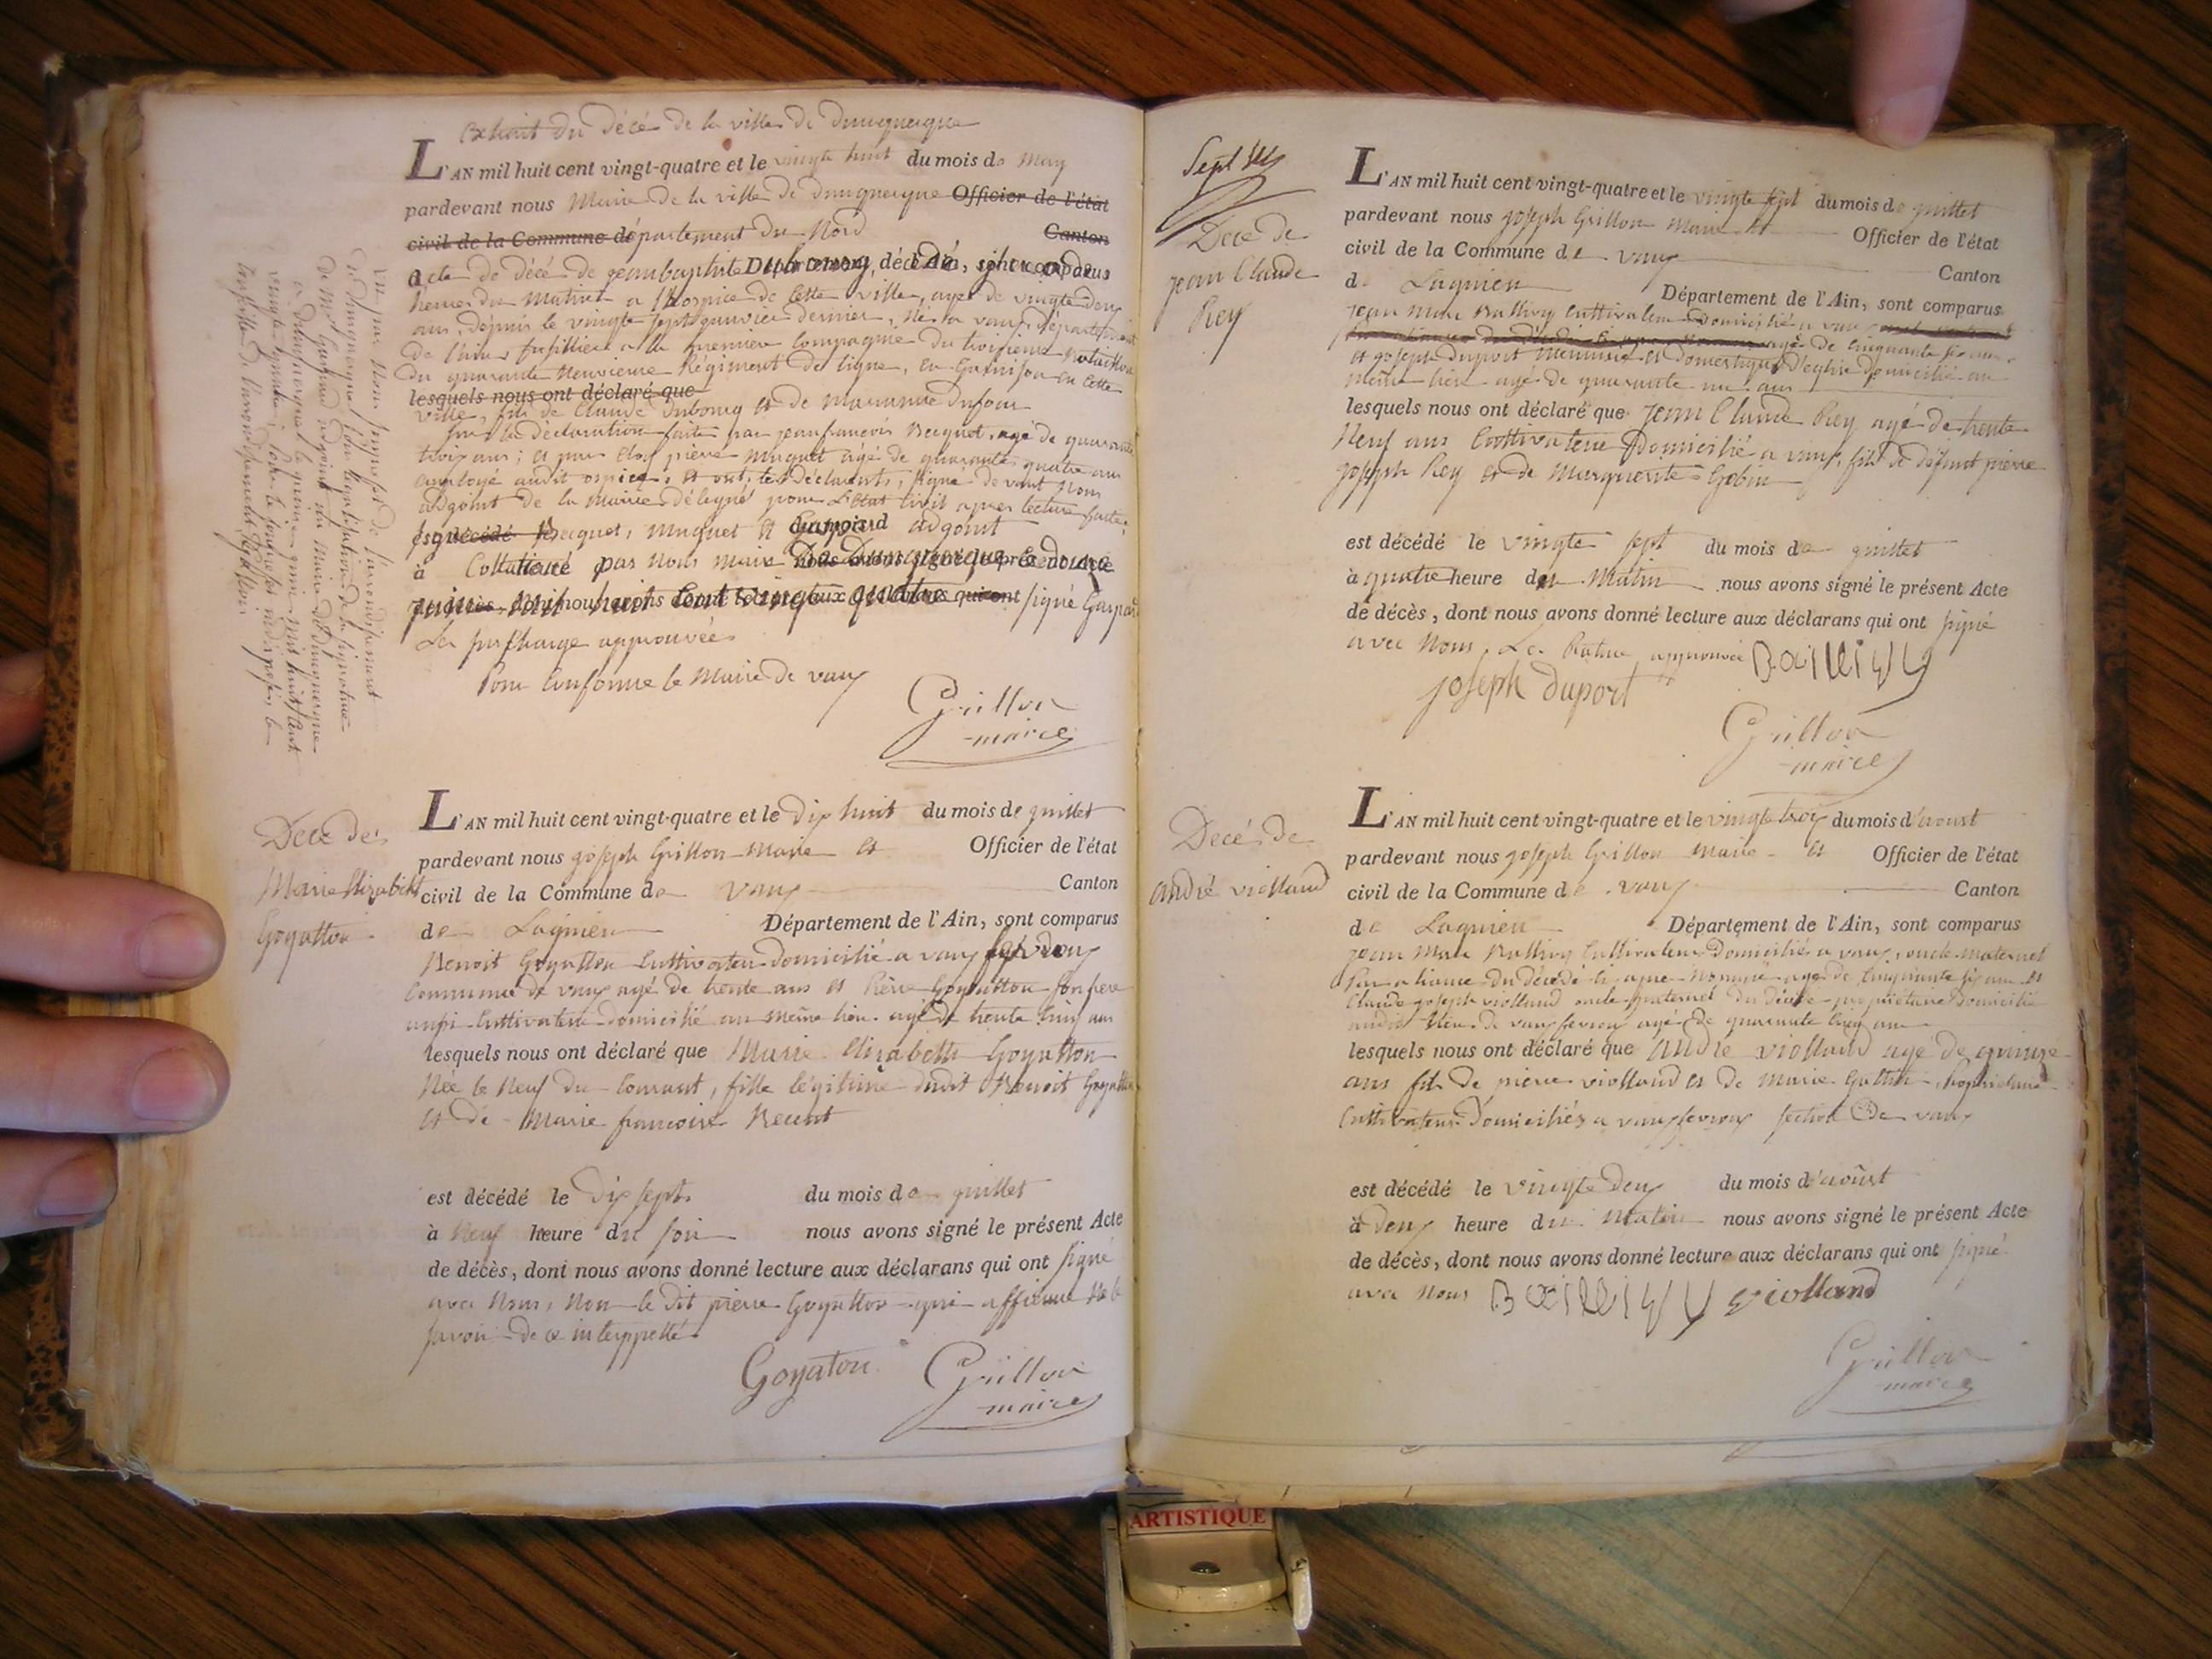 Extrait du décé de la ville de dunquerque
L'AN mil huit cent vingt-quatre et le vingte huit du mois de may
pardevant nous Maire de la ville de dunquerque Officier de l'état
civil de la Commune département du Nord Canton
acte de décé de jeanbaptiste Dubourg, décédé
heures du matin a l'hospice de cette ville, agé de vingte deux
ans, depuis le vingte sept janvier dernier, né a vaux département
de l'ain, fusillier a la premiere compagnie du troisieme Bataillon
du quarante neuvieme Régiment de ligne, en Garnison en cette
lesquels nous ont déclaré que
ville, fils de Claude Dubourg et de marianne Dufour
Sur la déclaration faite par jeanfrancois Becquet, agé de quarante
trois ans; et par Eloy pierre muquet agé de quarante quatre ans
employé audit ospice, et ont, les déclarants, signé devant nous
adgoint de la Mairie délegué pour L'état Civil apres lecture faite
Becquet, muquet et Gaspard adgoint
à Collationé par nous maire De Dunquerque le douze
juin mil huit Cent vingt quatre signé Gaspard
Les surcharge approuvées
Pour Conforme le Maire de vaux
Grillon
maire
Vu par Nous Sousprefet de l'arrondissement
de dunquerque pour légalisation de la signature
de Mr. Gaspard adgoint au Maire de Dunquerque
a dunquerque le quinze juin mil huit Cent
vingte quatre, pour le sousprefet indisposé, le
Conseiller de l'arrondissement
Decé de
Marie Elizabeth
Goyatton
L'AN mil huit cent vingt-quatre et le dix huit du mois de juillet
pardevant nous joseph Grillon Maire et Officier de l'état
civil de la Commune de vaux Canton
de Lagnieu Département de l'Ain, sont comparus
Benoit Goyatton Cultivateur domicilié a vaux fevroux
Commune de vaux agé de trente ans et Pierre Goyatton son frere
aussi Cultivateur domicilié au même lieu agé de trente cinq ans
lesquels nous ont déclaré que Marie Elizabeth Goyatton
Née le neuf du Courant, fille légitime dudit Benoit Goyatton
et de Marie francoise
est décédé le dix sept du mois de juillet
à neuf heure du soir nous avons signé le présent Acte
de décès, dont nous avons donné lecture aux déclarans qui ont signé
avec Nous, Non le dit pierre Goyatton qui a affirmé ne le
savoir de ce interppellé
Goyaton Grillon
maire
Sept
Decé de
jean Claude
Rey
L'AN mil huit cent vingt-quatre et le vingte sept du mois de juillet
pardevant nous joseph Grillon Maire et Officier de l'état
civil de la Commune de vaux Canton
de Lagnieu Département de l'Ain, sont comparus
jean Marc Ballivy Cultivateur Domicilié a vaux
agé de Cinquante six ans
et joseph Duport Menuisier et domestique d'eglise Domicilié au
même lieu agé de quarante un ans
lesquels nous ont déclaré que jean Claude Rey agé de trente
Neuf ans Cultivateur Domicilié a vaux, fils de défunt pierre
joseph Rey et de Marguerite Gobin
est décédé le vingte sept du mois de juillet
à quatre heure du Matin nous avons signé le présent Acte
de décès, dont nous avons donné lecture aux déclarans qui ont signé
avec Nous. La Rature approuvée Baillivy
joseph duport
Grillon
maire
Decés de
andré violland
L'AN mil huit cent vingt-quatre et le vingte trois du mois d'aoust
pardevant nous joseph Grillon Maire et Officier de l'état
civil de la Commune de vaux Canton
de Lagnieu Département de l'Ain, sont comparus
jean Marc Ballivy Cultivateur Domicilié a vaux, oncle maternel
Par aliance du décédé ci apres nommé agé de Cinquante six ans et
Claude joseph violland oncle paternel du décédé propriétaire Domicilié
audit lieu de vaux fevroux agé de quarante cinq ans
lesquels nous ont déclaré que André violland agé de quinze
ans fils de pierre violland et de marie Guttin, propriétaire
Cultivateur Domiciliés a vaux fevroux section De vaux
est décédé le vingte deux du mois d'aoûst
à deux heure du Matin nous avons signé le présent Acte
de décès, dont nous avons donné lecture aux déclarans qui ont signé
avec Nous Baillivy violland
Grillon
maire
ARTISTIQUE